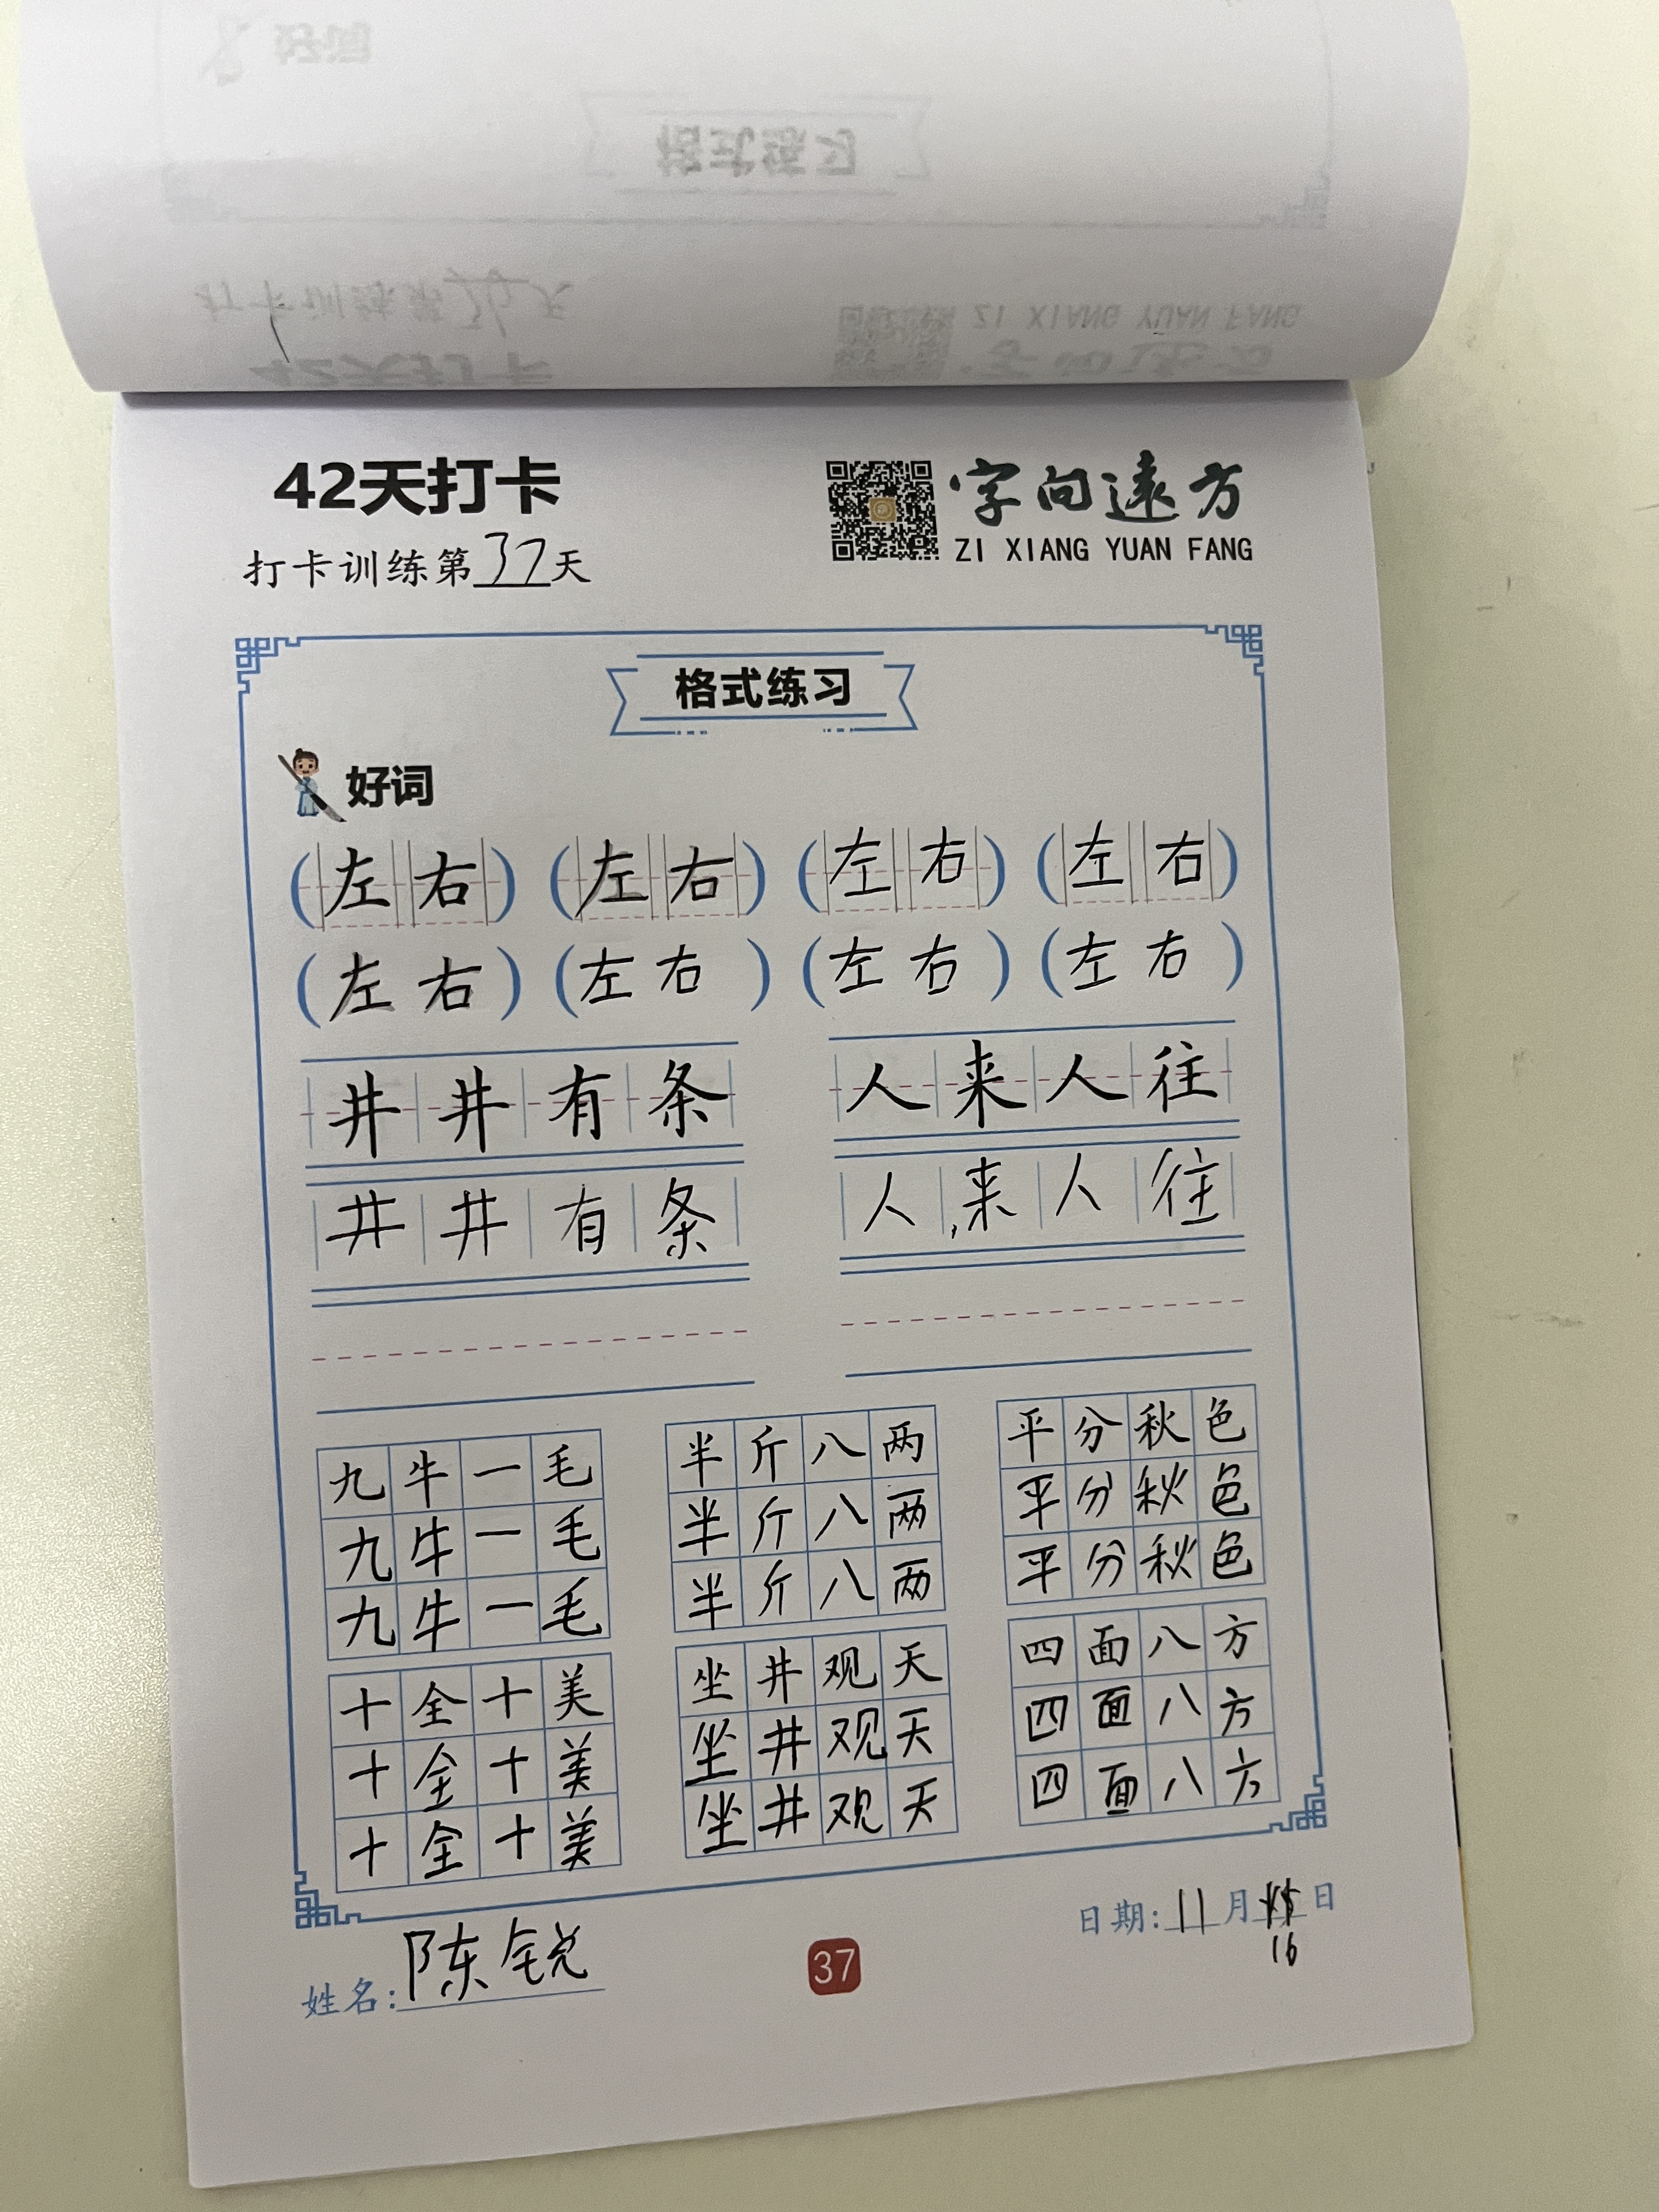 42天打卡
字向远方
打卡训练第37天
ZI XIANG YUAN FANG
格式练习
好词
(左右) (左右) (左右) (左右)
(左右) (左右) (左右) (左右)
井井有条 人来人往
井井有条 人来人往
九牛一毛 半斤八两 平分秋色
九牛一毛 半斤八两 平分秋色
九牛一毛 半斤八两 平分秋色
十全十美 坐井观天 四面八方
十全十美 坐井观天 四面八方
十全十美 坐井观天 四面八方
姓名:陈锐
37
日期:11月16日